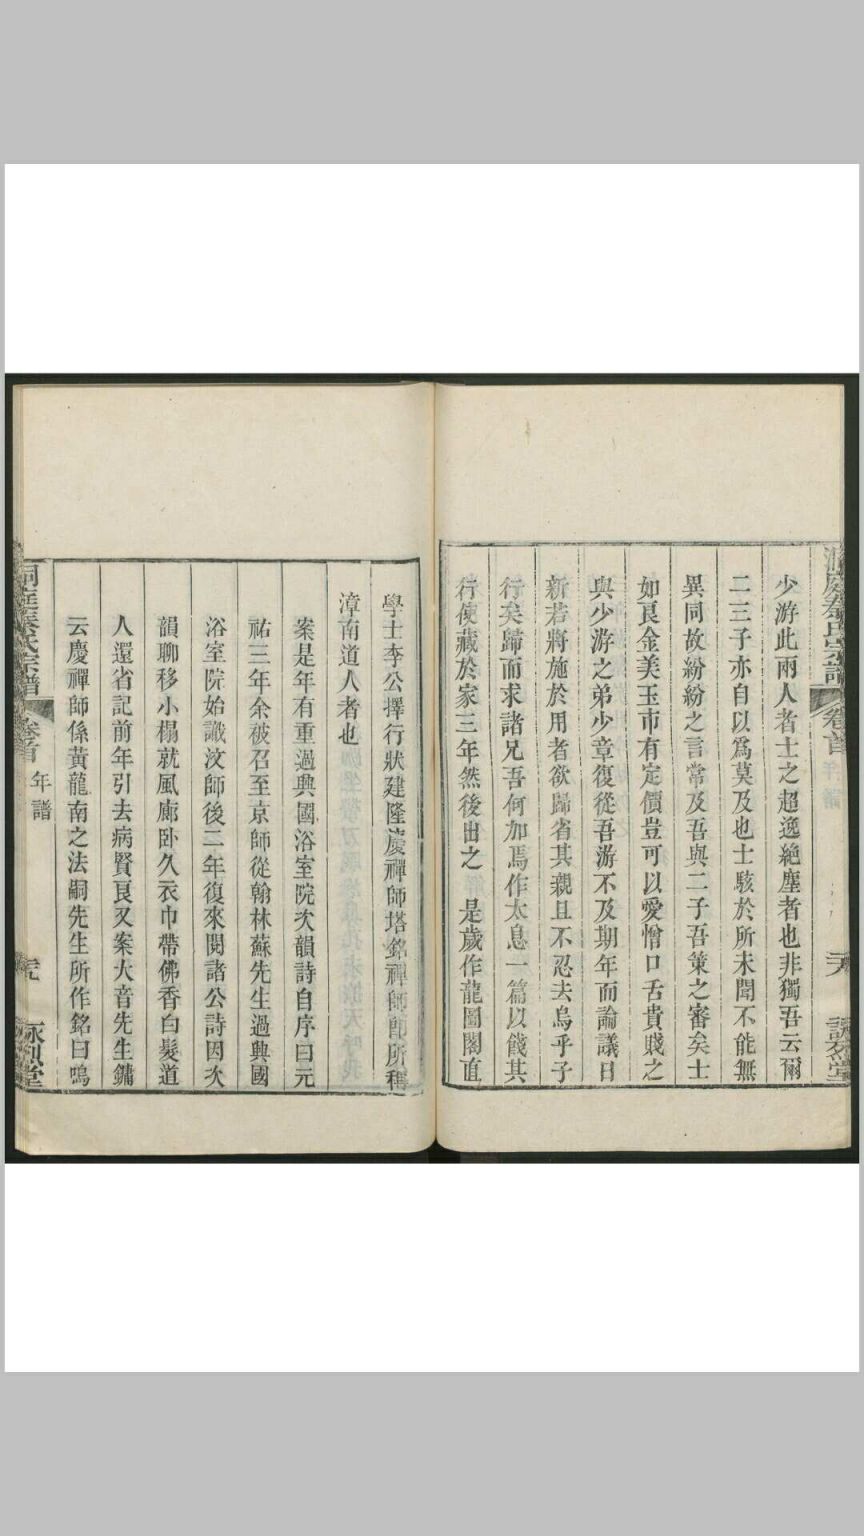 少游此兩人者士之超逸絶塵者也非獨吾云爾
二三子亦自以爲莫及也士駭於所未聞不能無
異同故紛紛之言常及吾與二子吾策之審矣士
如良金美玉市有定價豈可以愛憎口舌貴賤之
與少游之弟少章復從吾游不及期年而論議日
新若將施於用者欲歸省其親且不忍去烏乎子
行矣歸而求諸兄吾何加焉作太息一篇以餞其
行使藏於家三年然後出之 是歲作龍圖閣直
學士李公擇行狀建隆慶禪師塔銘禪師即所稱
漳南道人者也
案是年有重過興國浴室院次韻詩自序曰元
祐三年余被召至京師從翰林蘇先生過興國
浴室院始識汶師後二年復來閱諸公詩因次
韻聊移小榻就風廊卧久衣巾帶佛香白髮道
人還省記前年引去病賢良又案大音先生鏞
云慶禪師係黃龍南之法嗣先生所作銘曰嗚
洞庭秦氏宗譜 卷首 年譜 詠烈堂